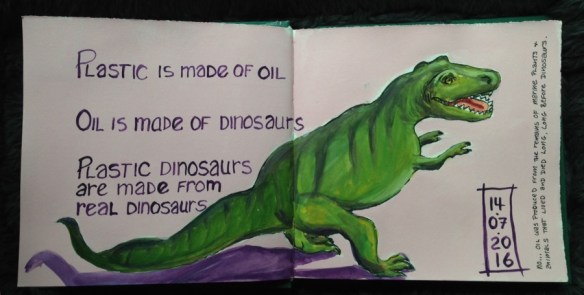 PLASTIC IS MADE OF OIL
OIL IS MADE OF DINOSAURS
PLASTIC DINOSAURS
ARE MADE FROM
REAL DINOSAURS
14
.07.
20
16
... OIL WAS PRODUCED FROM THE REMAINS OF MARINE PLANTS &
ANIMALS THAT LIVED AND DIED LONG, LONG BEFORE DINOSAURS.